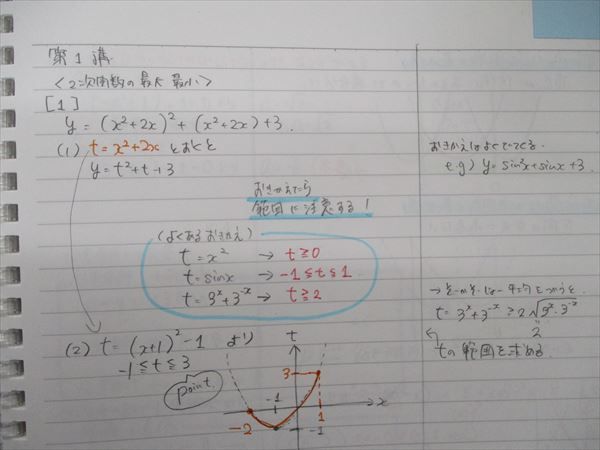 第1講
<2次関数の最大 最小>
[1]
y = (x²+2x)² + (x²+2x) + 3.
(1) t = x²+2x とおくと
y = t²+t+3
おきかえたら
範囲に注意する!
(よくある おきかえ)
t = x² → t ≧ 0
t = sinx → -1 ≦ t ≦ 1
t = 3ˣ+3⁻ˣ → t ≧ 2
(2) t = (x+1)² - 1 より
-1 ≦ t ≦ 3
point.
t
3
-1
x
-2
1
-1
おきかえはよくでてくる.
e.g) y = sin²x + sinx + 3.
t = 3ˣ+3⁻ˣ ≧ 2√3ˣ・3⁻ˣ
"
2
tの範囲を求める.